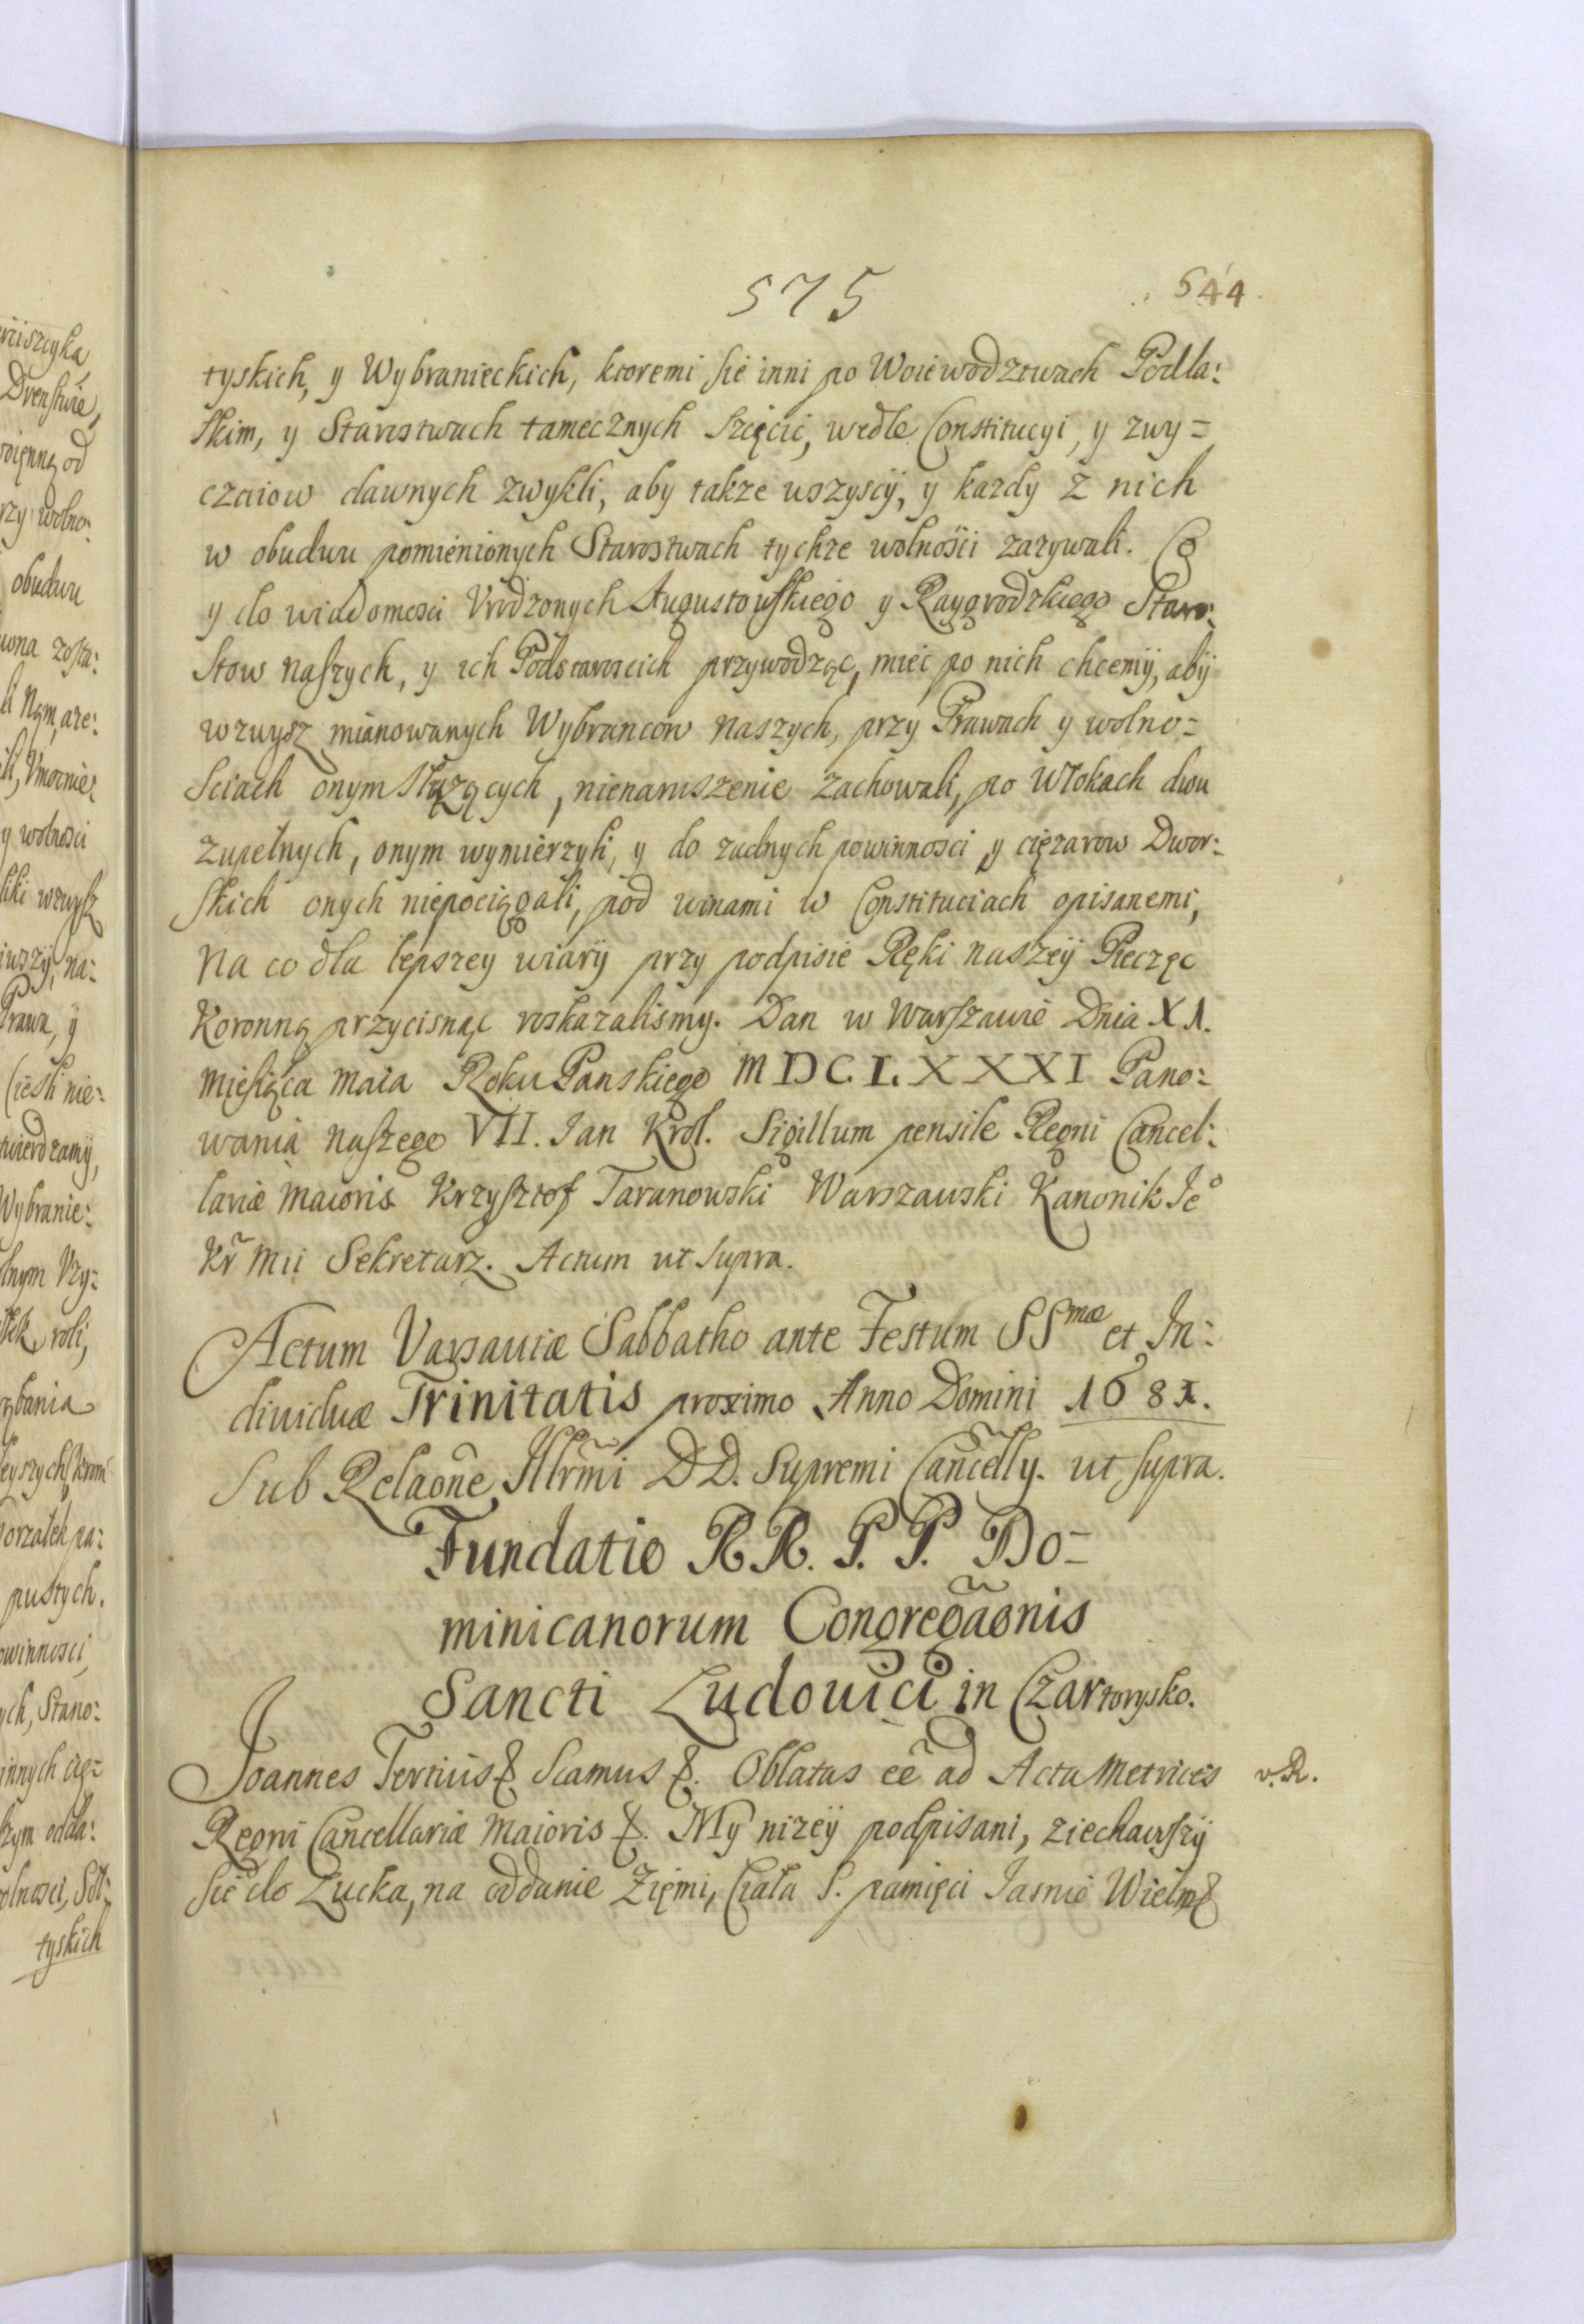 575
544
tyskich, y Wybranieckich, ktoremi sie inni po Woiewodztwach Podla:
skim, y Starostwach tamecznych szcięcić, wedle Constitucyi, y zwy=
czaiow dawnych zwykli, aby takze wszyscÿ, y kazdy z nich
w obudwu pomienionych Starostwach tychze wolności zazywali. Co
y do wiadomosci Vrodzonych Augustowskiego y Raygrodzkiego Staro:
stow naszych, y ich Podstaroscich przywodząc, mieć po nich chcemÿ, abÿ
wzwysz mianowanych Wybrancow naszych, przy Prawach y wolno=
sciach onym słuzących, nienaruszenie zachowali, po włokach dwu
zupełnych, onym wymierzyli, y do zadnych powinnosci y cięzarow Dwor:
skich onych niepociągali, pod winami w Constituciach opisanemi,
Na co dla lepszey wiarÿ przy podpisie Ręki naszeÿ Pieczęc
Koronną przycisnąc roskazalismy. Dan w Warszawie Dnia X1.
miesiąca maia Roku Panskiego MDCLXXXI Pano:
wania naszego VII. Jan Krol. Sigillum pensile Regni Cancel:
lariæ maioris Krzysztof Taranowski Warszawski Kanonik Je⁰
Kr̃ Mci Sekretarz. Actum ut supra.
Actum Varsauiæ Sabbatho ante Festum SSmæ et In:
diuiduæ Trinitatis proximo Anno Domini 1681.
Sub Relaõne Illr̃mi DD. Supremi Cañcelly. ut supra.
Fundatio RR. P. P. Do=
minicanorum Congregãonis
Sancti Ludouici in Czartorysko.
Joannes Tertius & Scamus &. Oblatas eẽ ad Acta Metrices
v. R.
Regni Cancellariæ maioris &. My nizeÿ podpisani, ziechawszÿ
sie do Łucka, na oddanie Zięmi, Ciała S. pamięci Jasnie Wielm&